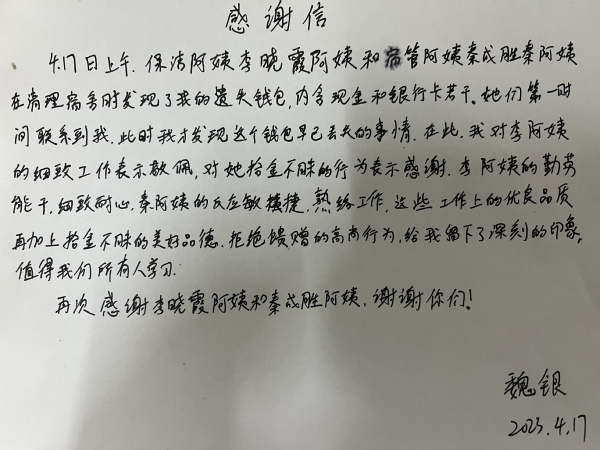 感谢信
4.17日上午，保洁阿姨李晓霞阿姨和宿管阿姨秦成胜秦阿姨
在清理宿舍时发现了我的遗失钱包，内含现金和银行卡若干。她们第一时
间联系到我，此时我才发现这个钱包早已丢失的事情。在此，我对李阿姨
的细致工作表示敬佩，对她拾金不昧的行为表示感谢。李阿姨的勤劳
能干，细致耐心，秦阿姨的反应敏捷，熟练工作，这些工作上的优良品质
再加上拾金不昧的美好品德，拒绝馈赠的高尚行为，给我留下了深刻的印象。
值得我们所有人学习.
再次感谢李晓霞阿姨和秦成胜阿姨，谢谢你们！
魏银
2023.4.17